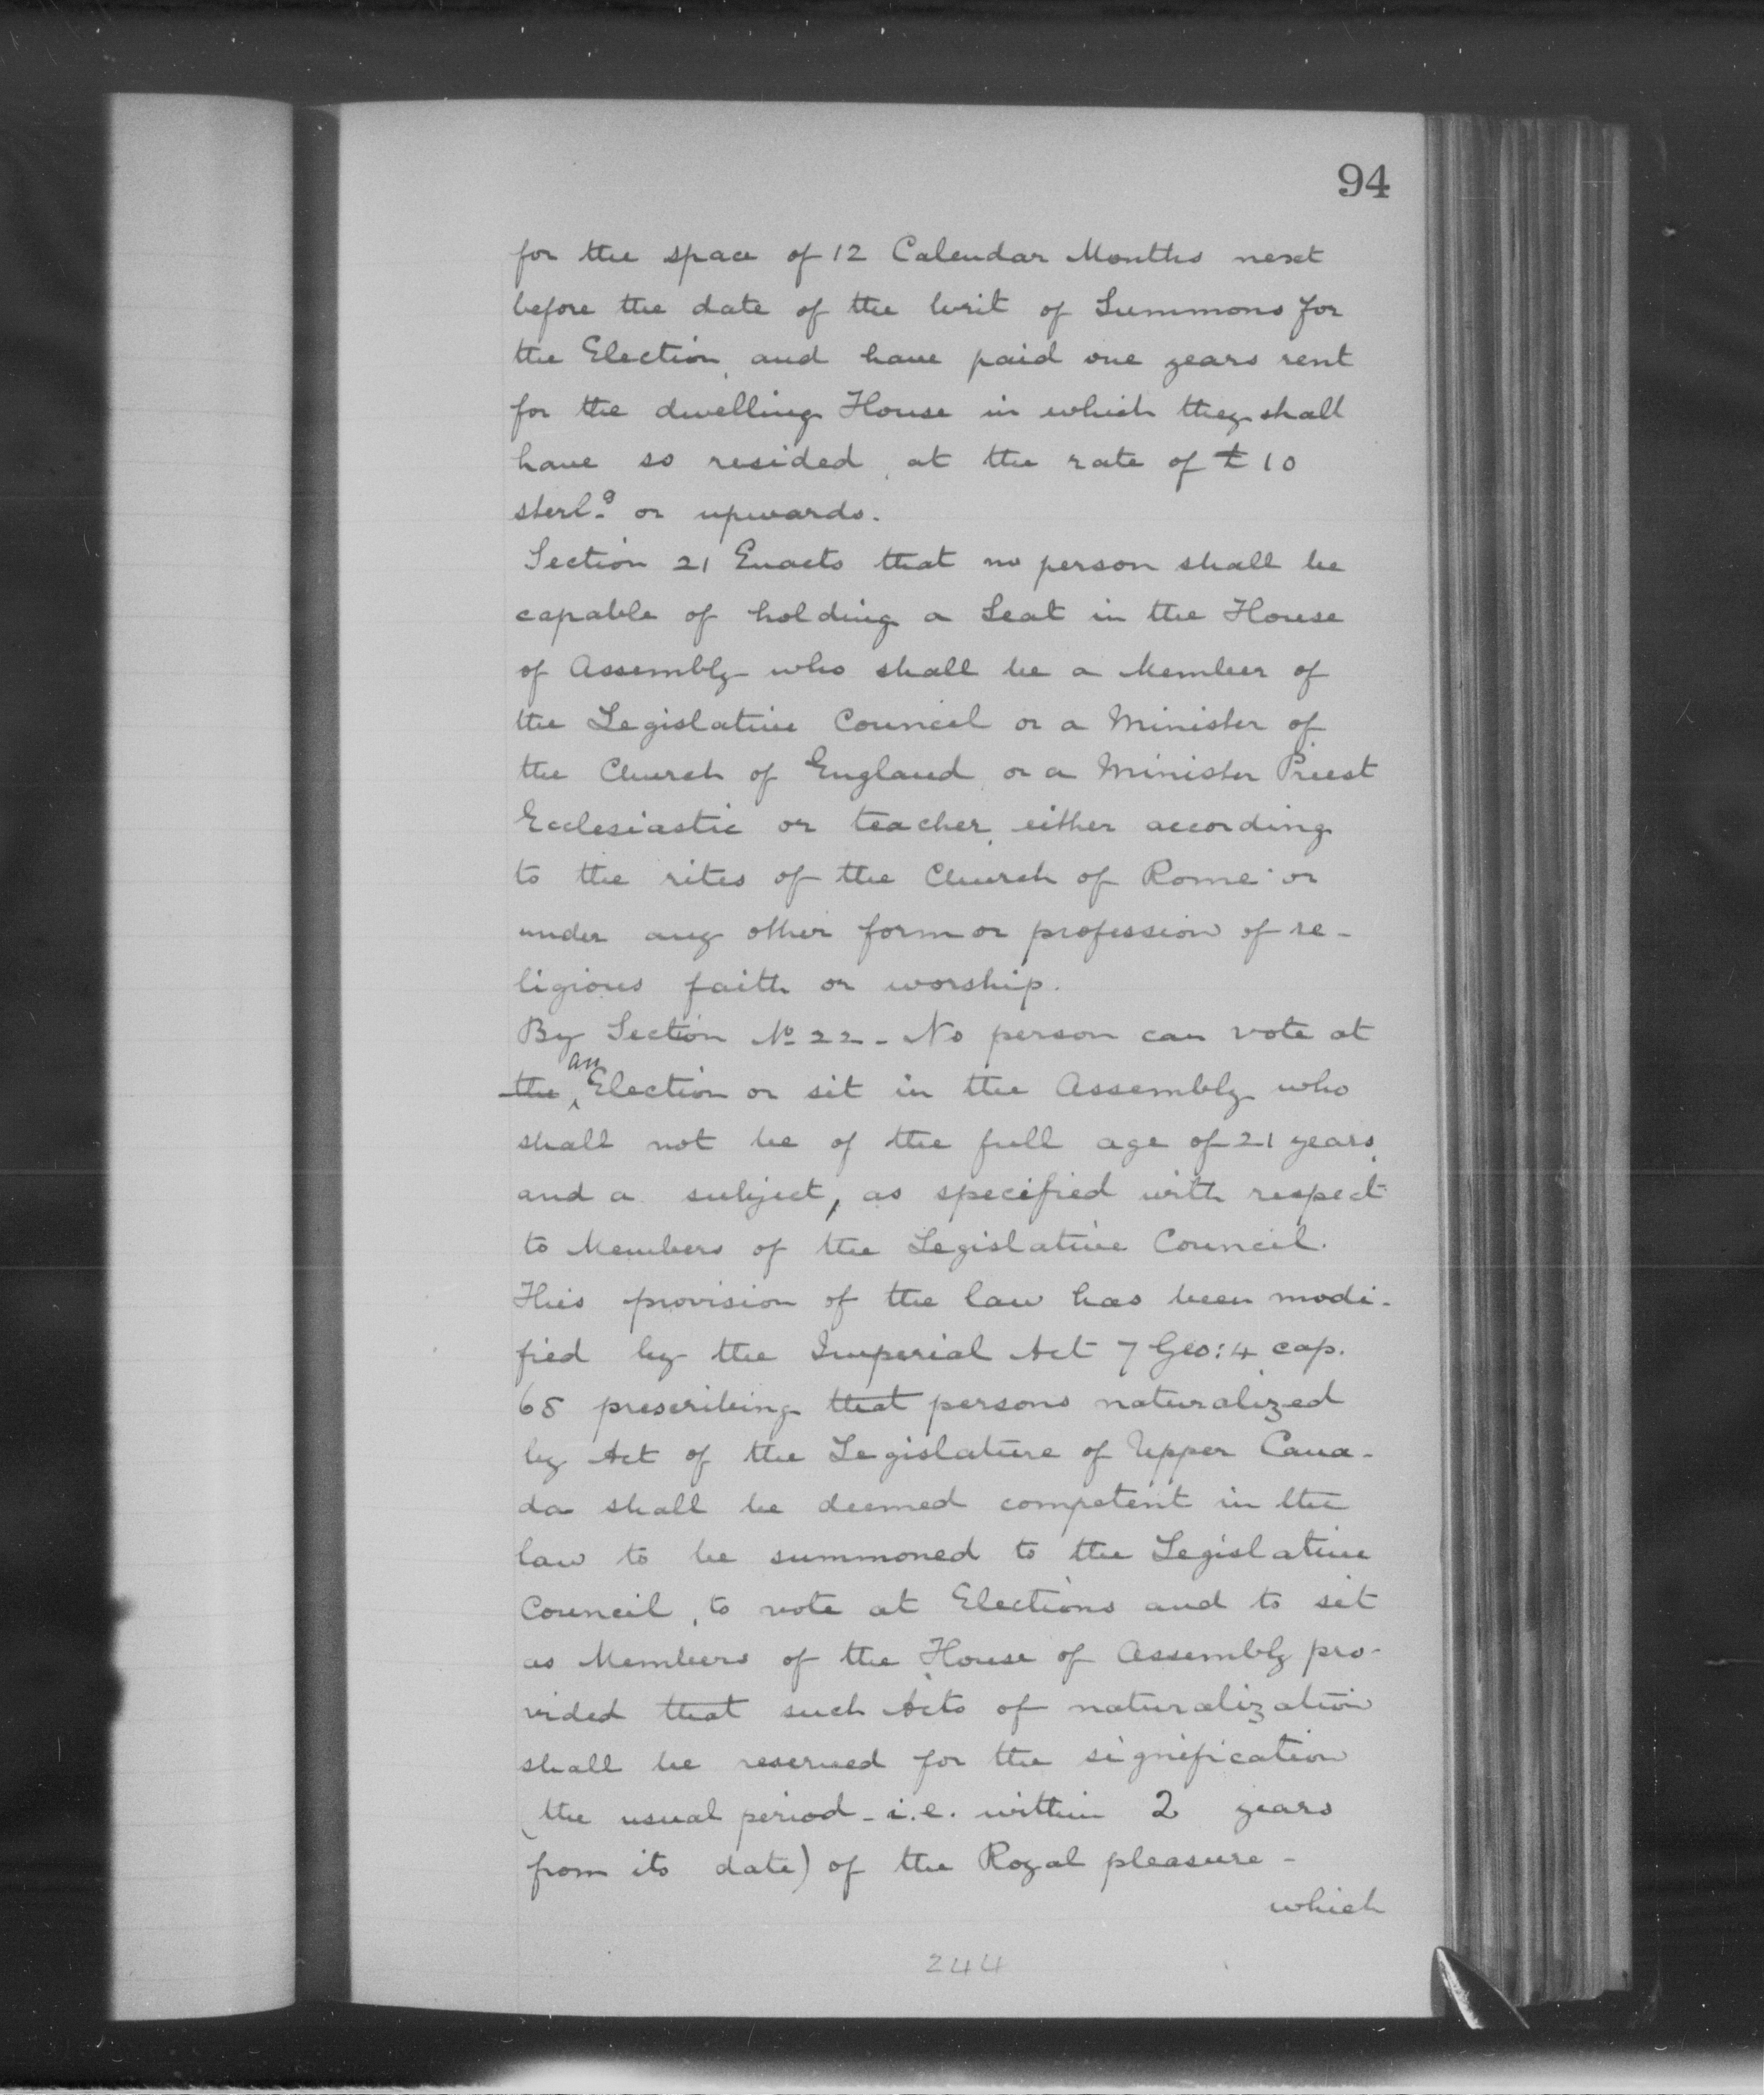 94
for the space of 12 Calendar Months next
before the date of the Writ of Summons for
the Election, and have paid one years rent
for the dwelling House in which they shall
have so resided, at the rate of £10
sterl.g or upwards.
Section 21 Enacts that no person shall be
capable of holding a Seat in the House
of Assembly who shall be a Member of
the Legislative Council or a Minister of
the Church of England, or a Minister Priest
Ecclesiastic or teacher, either according
to the rites of the Church of Rome or
under any other form or profession of re-
ligious faith or worship.
By Section No 22 - No person can vote at
the an Election or sit in the Assembly who
shall not be of the full age of 21 years,
and a subject, as specified with respect
to Members of the Legislative Council.
This provision of the law has been modi-
fied by the Imperial Act 7 Geo: 4 cap.
68 prescribing that persons naturalized
by Act of the Legislature of Upper Cana-
da shall be deemed competent in the
law to be summoned to the Legislative
Council, to vote at Elections and to sit
as Members of the House of Assembly pro-
vided that such Acts of naturalization
shall be reserved for the signification
(the usual period - i.e. within 2 years
from its date) of the Royal pleasure -
which
244